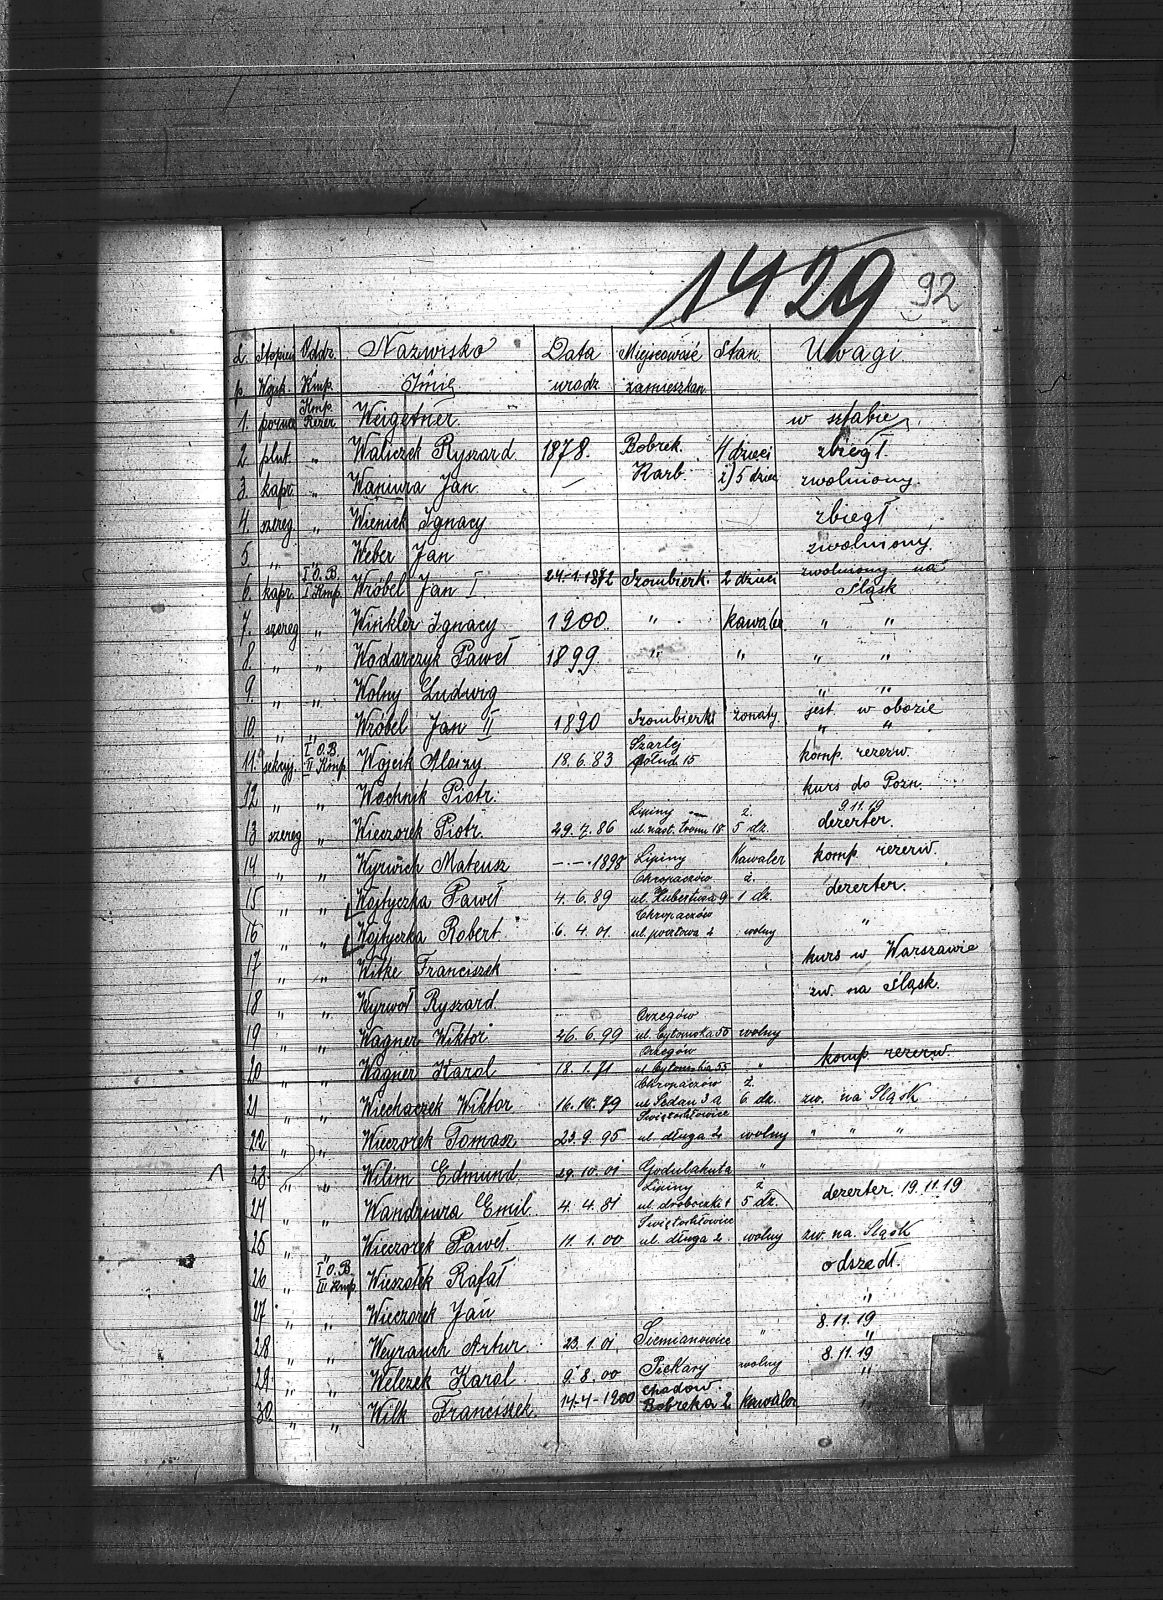 1429 92
L. Stopień Oddz. Nazwisko Data Miejscowość Stan. Uwagi
p. Wojsk. Kmp. Imię urodz. zamieszkan.
1. Kmp. Rezer. w sztabie
2. plut. " Waliczek Ryszard 1878. Bobrek. 4 dzieci zbiegł.
3. kapr. " Waniura Jan. — Karb. ż) 5 dzieci zwolniony.
4. szereg. " Ignacy zbiegł
5. " Weber Jan zwolniony.
6. kapr. I O.B. I Kmp. Wróbel Jan I. 24.1.1872 Szombierk. 2 dzieci zwolniony na Śląsk
7. szereg. " Winkler Ignacy 1900. " kawaler " "
8. " " Wodarczyk Paweł 1899 " " " "
9. " " Wolny Ludwig " "
10. " " Wróbel Jan II 1890 Szombierki żonaty jest w obozie " "
11. sekcyj. I O.B. II Kmp. Wojcik Aloizy 18.6.83 Szarlej 15 komp. rezerw.
12 " " Wochnik Piotr. kurs do Pozn.
13 szereg " Wieczorek Piotr. 29.7.86 Lipiny 18 ż. 5 dz. 9.11.19 dezerter.
14 " " Wyrwich Mateusz —.—.1898 Lipiny Kawaler komp. rezerw.
15 " " Wojtyczka Paweł 4.6.89 Chropaczów ul. Hubertusa 9 ż. 1 dz. dezerter.
16 " " Wojtyczka Robert. 6.4.01. Chropaczów ul. pocztowa 2 wolny "
17 " " Witke Franciszek — kurs w Warszawie
18 " " Wyrwoł Ryszard. zw. na Śląsk.
19 " " Wagner Wiktor 26.6.99 Orzegów ul. Bytomska 55 wolny
20 " " Wagner Karol 18.1.71 Orzegów ul. Bytomska 55 " komp. rezerw.
21 " " Wiechaczek Wiktor 16.10.79 Chropaczów ul. Sedan 3 a ż. 6 dz. zw. na Śląsk
22 " " Wieczorek Tomasz. 23.9.95 Świętochłowice ul. długa 2 wolny " " "
23. " " Wilim Edmund. 29.10.01 Godulahuta "
24 " " Wandziura Emil. 4.4.81 Lipiny ż 5 dz. dezerter. 19.11.19
25 " " Wieczorek Paweł. 11.1.00 Świętochłowice ul. długa 2. wolny zw. na Śląsk
26 " I O.B. III Kmp. Wieszołek Rafał odszedł.
27 " " Wieczorek Jan "
28 " " Weyrauch Artur 23.1.01. Siemianowice " 8.11.19 "
29 " " Welczek Karol 9.8.00 Piekary wolny 8.11.19 "
30 " " Wilk Franciszek. 14-4-1900 Bobreka 2 kawaler "